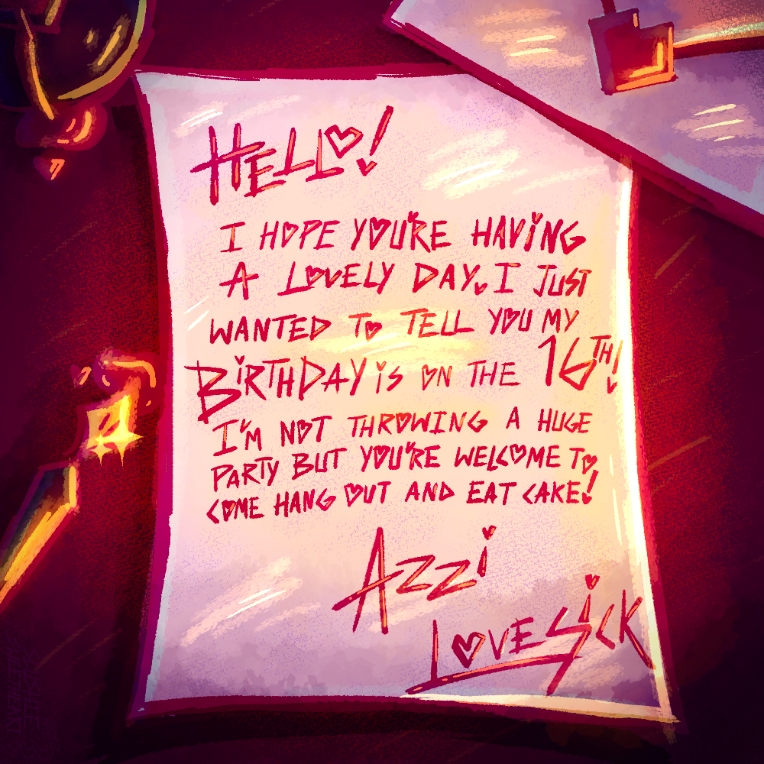 HELLO!
I HOPE YOU'RE HAVING
A LOVELY DAY. I JUST
WANTED TO TELL YOU MY
BiRTHDAY iS ON THE 16TH!
I'M NOT THROWING A HUGE
PARTY BUT YOU'RE WELCOME TO
COME HANG OUT AND EAT CAKE!
AZZi
LOVESiCK